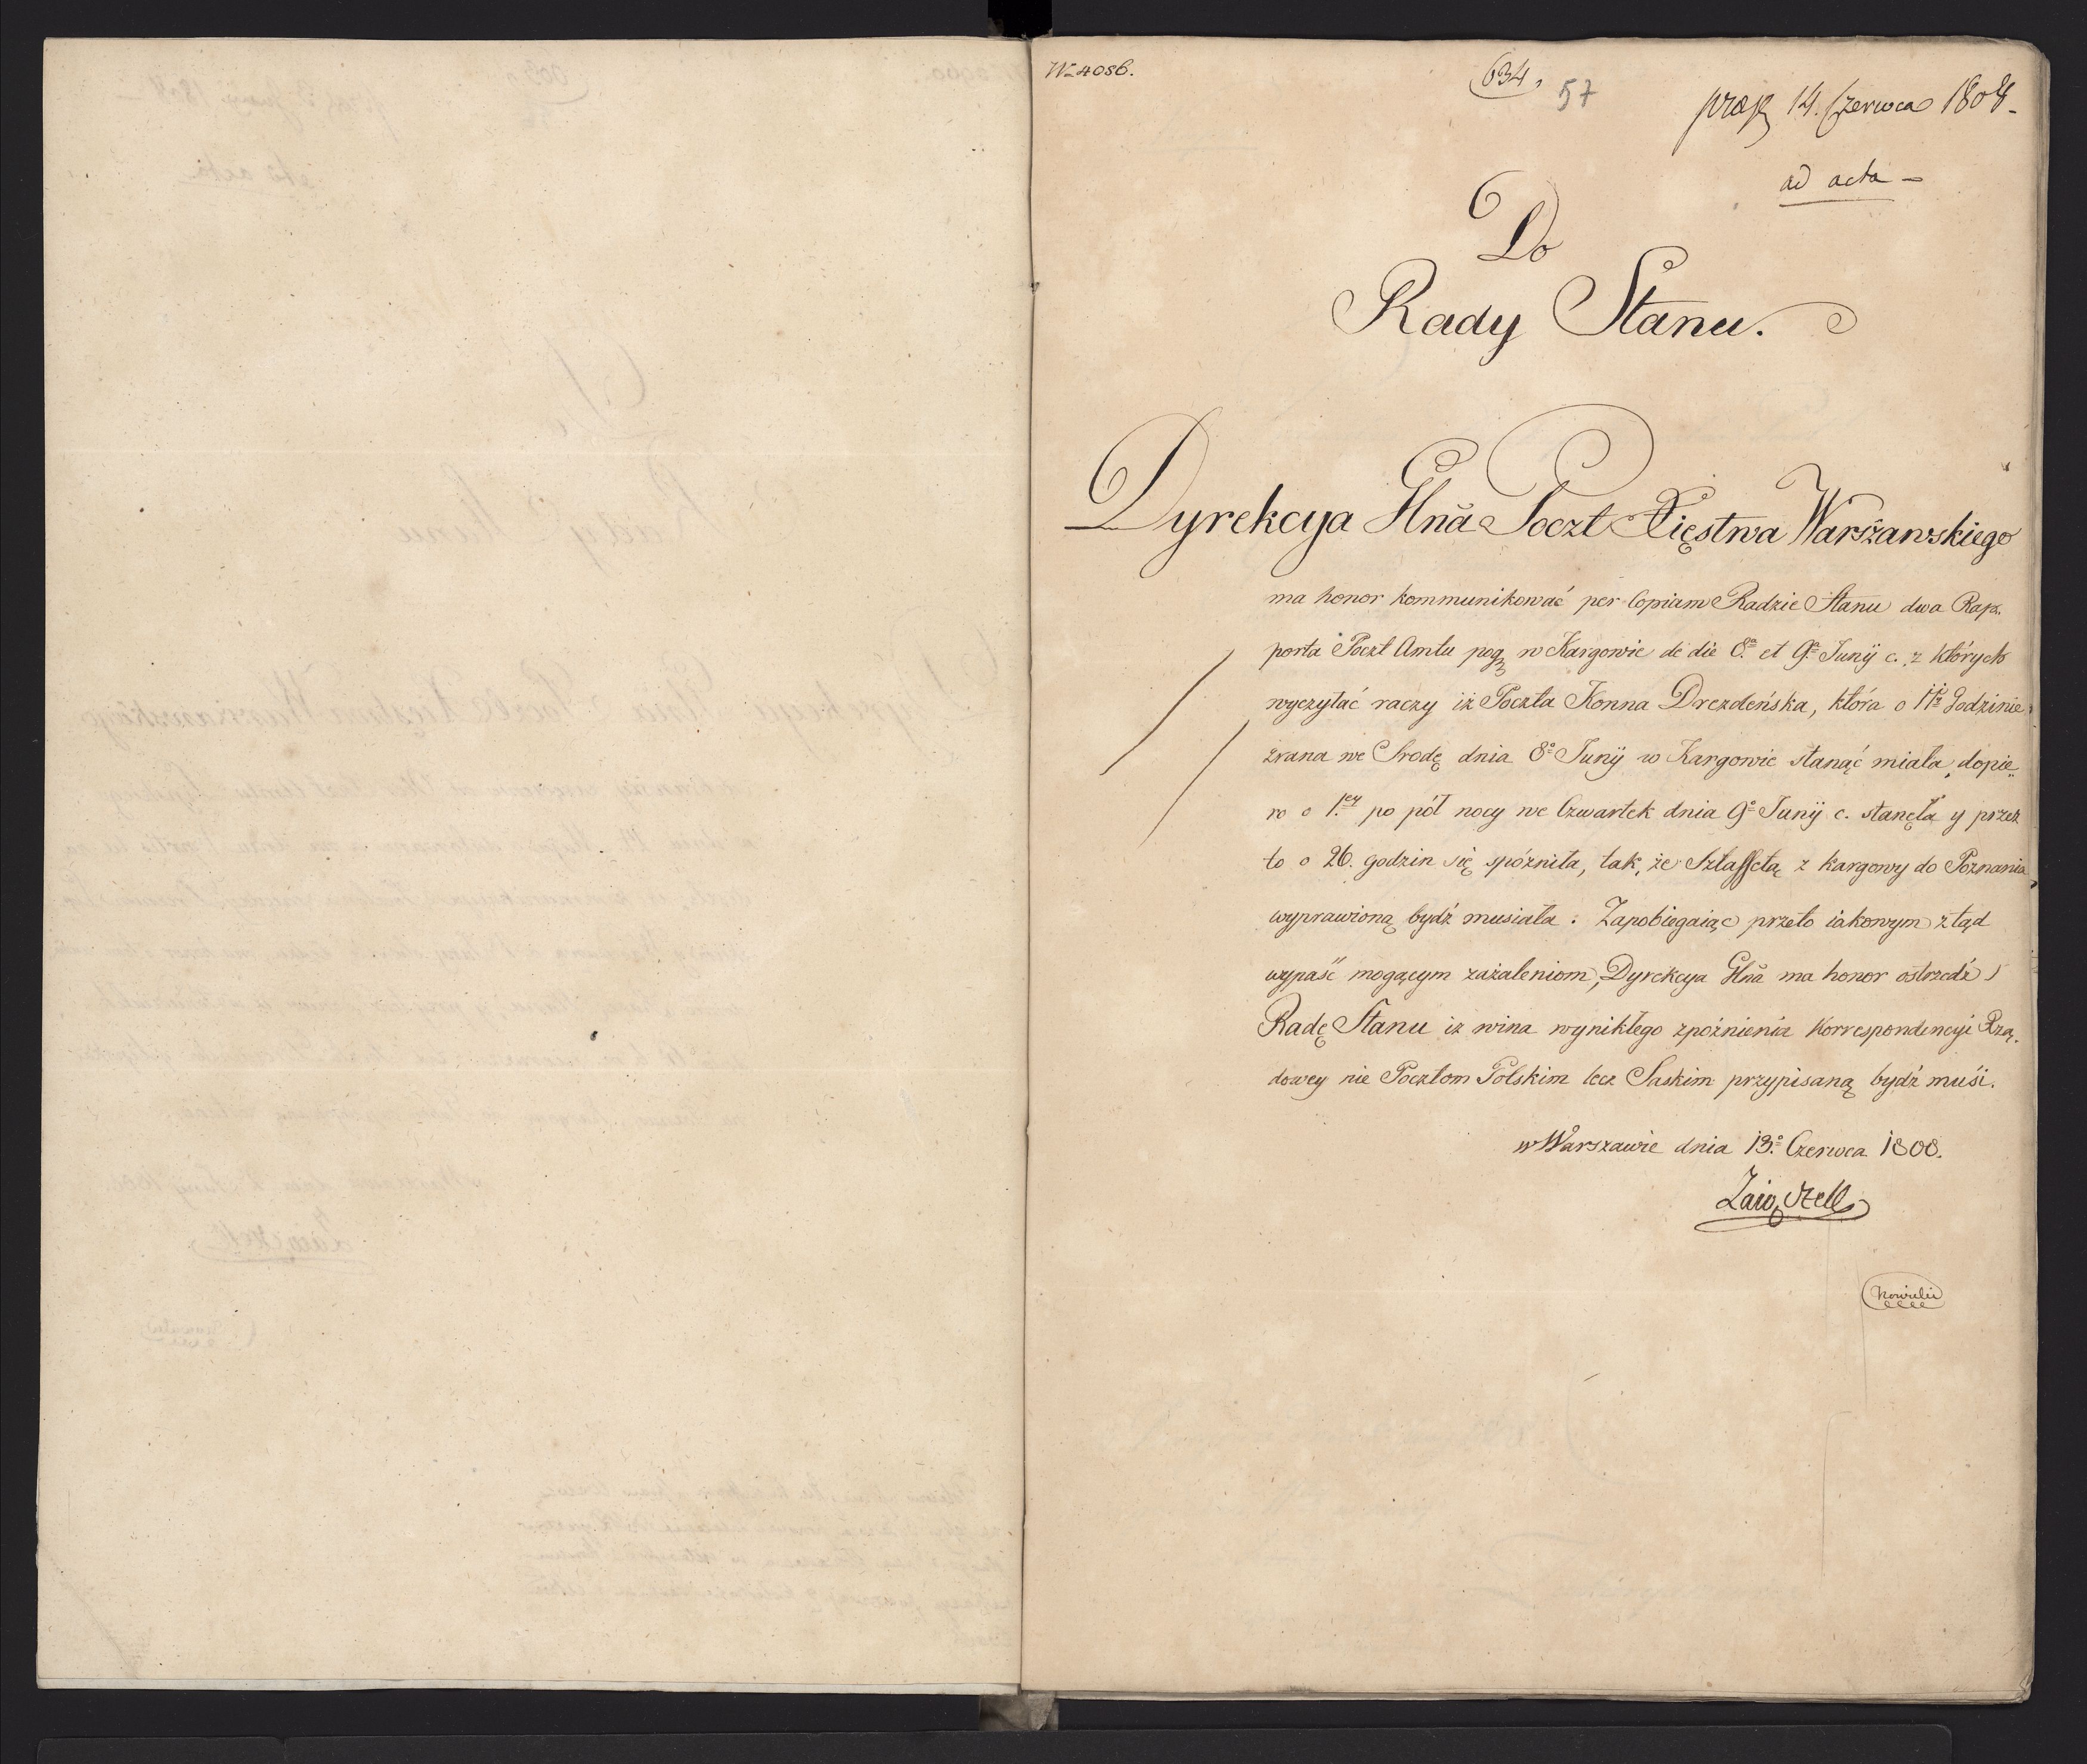 No 4086.
634.
57
præs 14. Czerwca 1808.
ad acta
Do
Rady Stanu.
Dyrekcya Głna Poczt Xięstwa Warszawskiego
ma honor kommunikować per Copiam Radzie Stanu dwa Rap-
porta Poczt Amtu pogr w Kargowie de die 8a et 9a Junÿ c. z których
wyczytać raczy iż Poczta Konna Drezdeńska, która o 11tey Godzinie
zrana we Srodę dnia 8o Junÿ w Kargowie stanąć miała, dopie„
ro o 1ey po pół nocy we Czwartek dnia 9o Junÿ c. stanęła y przez
to o 26. godzin się spóźniła, tak, że Sztaffetą z Kargowy do Poznania
wyprawioną bydź musiała. Zapobiegaiąc przeto iakowym ztąd
wypaść mogącym zażaleniom, Dyrekcya Głna ma honor ostrzedz
Radę Stanu iż wina wynikłego zpóźnienia Korrespondencyi Rzą-
dowey nie Pocztom Polskim lecz Saskim przypisaną bydź muśi.
w Warszawie dnia 13o Czerwca 1808.
Zaiączek